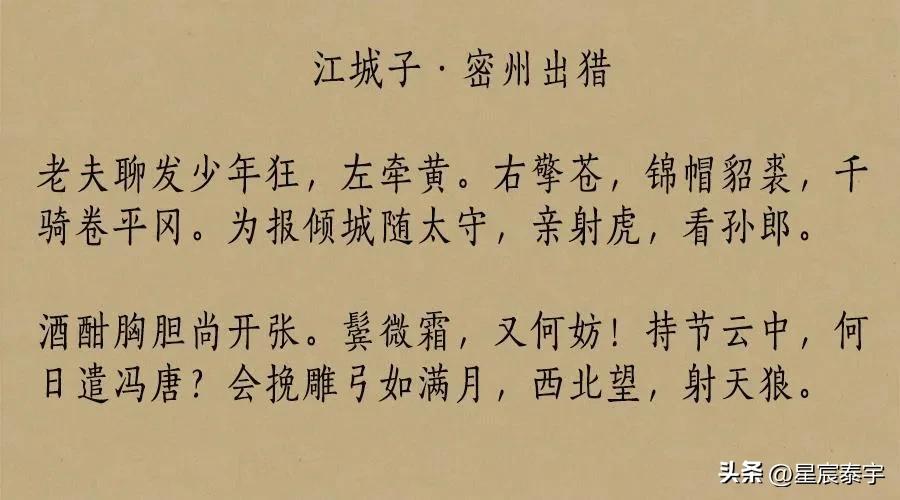 江城子·密州出猎
老夫聊发少年狂，左牵黄。右擎苍，锦帽貂裘，千
骑卷平冈。为报倾城随太守，亲射虎，看孙郎。
酒酣胸胆尚开张。鬓微霜，又何妨！持节云中，何
日遣冯唐？会挽雕弓如满月，西北望，射天狼。
头条 @星宸泰宇